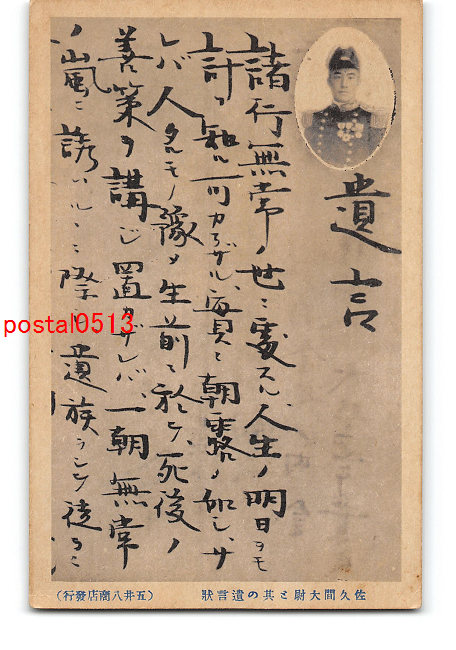 遺言
諸行無常ノ世ニ處スル、人生ノ明日ヲモ
計リ知ル可カラザル、實ニ朝露ノ如シ、サ
レバ人タルモノ豫メ生前ニ於テ、死後ノ
善策ヲ講ジ置カザレバ、一朝無常
ノ嵐ニ誘ハルヽニ際シ遺族ヲシテ徒ラニ
postal0513
佐久間大尉と其の遺言狀
(五井八商店發行)